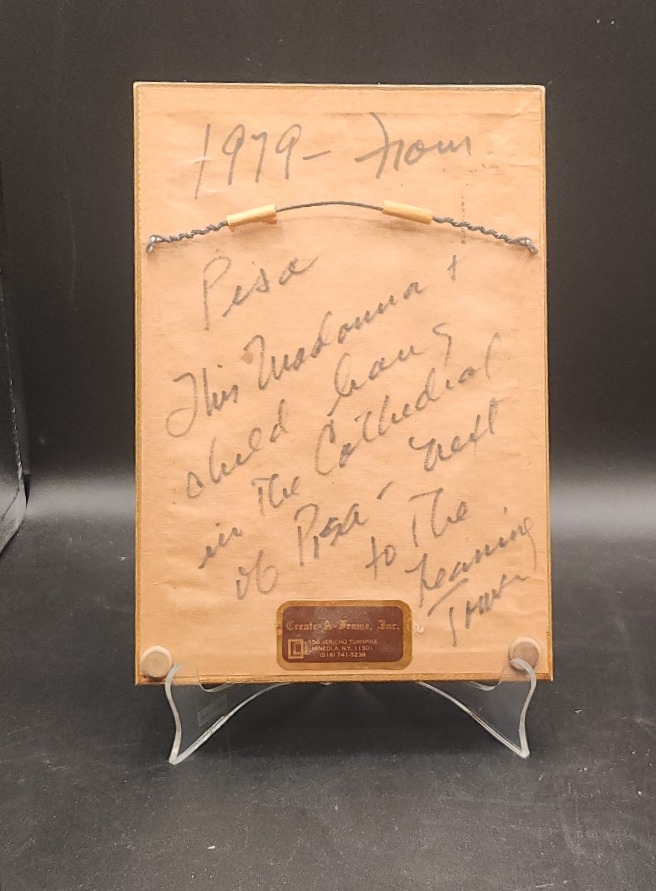 1979 - From
Pisa
This Madonna +
child hang
in The Cathedral
of Pisa - next
to The
Leaning
Tower
Create-A-Frame, Inc.
156 JERICHO TURNPIKE
MINEOLA, N.Y. 11501
(516) 741-5238